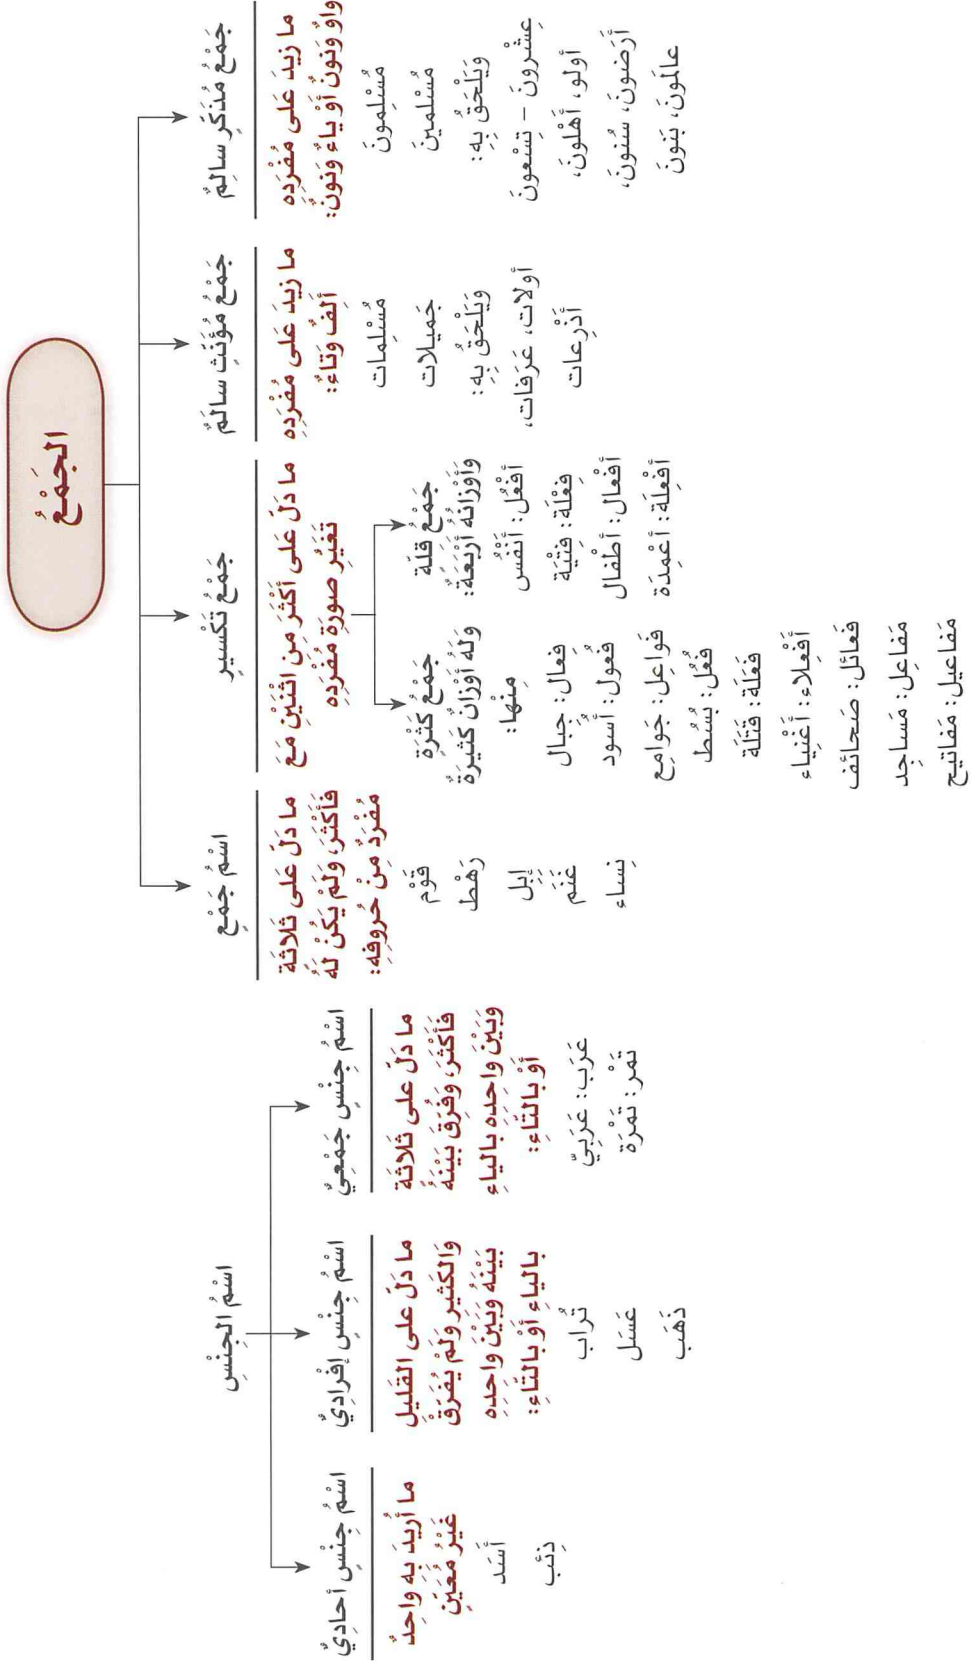 الجَمْعُ
جَمْعُ مُذَكَّرٍ سالِمٌ
ما زيدَ عَلى مُفْرَدِهِ
واوٌ وَنونٌ أَوْ ياءٌ وَنونٌ:
مُسْلِمونَ
مُسْلِمينَ
وَيَلْحَقُ بِهِ:
عِشْرونَ - تِسْعونَ
أولو، أَهْلونَ،
أَرَضونَ، سُنونَ،
عالَمونَ، بَنونَ
جَمْعُ مُؤَنَّثٍ سالِمٌ
ما زيدَ عَلى مُفْرَدِهِ
أَلِفٌ وَتاءٌ:
مُسْلِمات
جَميلات
وَيَلْحَقُ بِهِ:
أولات، عَرَفات،
أَذْرِعات
جَمْعُ تَكْسيرٍ
ما دَلَّ عَلى أَكْثَرَ مِنِ اثْنَيْنِ مَعَ
تَغَيُّرِ صورَةِ مُفْرَدِهِ
جَمْعُ قِلَّة
وَأَوْزانُهُ أَرْبَعَةٌ:
أَفْعُل: أَنْفُس
فِعْلَة: فِتْيَة
أَفْعال: أَطْفال
أَفْعِلَة: أَعْمِدَة
جَمْعُ كَثْرَةٍ
وَلَهُ أَوْزانٌ كَثيرَةٌ
مِنْها:
فِعال: جِبال
فُعول: أُسُود
فَواعِل: جَوامِع
فُعُل: بُسُط
فَعَلَة: قَتَلَة
أَفْعِلاء: أَغْنِياء
فَعائل: صَحائف
مَفاعِل: مَسَاجِد
مَفاعيل: مَفاتيح
اسْمُ جَمْعٍ
ما دَلَّ عَلى ثَلاثَة
فَأَكْثَرَ، وَلَمْ يَكُنْ لَهُ
مُفْرَدٌ مِنْ حُروفِهِ:
قَوْم
رَهْط
إِبِل
غَنَم
نِساء
اسْمُ الجِنْسِ
اسْمُ جِنْسٍ جَمْعِيٌّ
ما دَلَّ عَلى ثَلاثَة
فَأَكْثَرَ، وَفُرِّقَ بَيْنَهُ
وَبَيْنَ واحِدِهِ بالياءِ
أَوْ بالتّاءِ:
عَرَب: عَرَبِيّ
تَمْر: تَمْرَة
اسْمُ جِنْسٍ إفْرادِيٌّ
ما دَلَّ عَلى القَليلِ
وَالكَثيرِ وَلَمْ يُفَرَّقْ
بَيْنَهُ وَبَيْنَ واحِدِهِ
بالياءِ أَوْ بالتّاءِ:
تُراب
عَسَل
ذَهَب
اسْمُ جِنْسٍ أحادِيٌّ
ما أُريدَ بِهِ واحِدٌ
غَيْرُ مُعَيَّنٍ
أَسَد
ذِئب